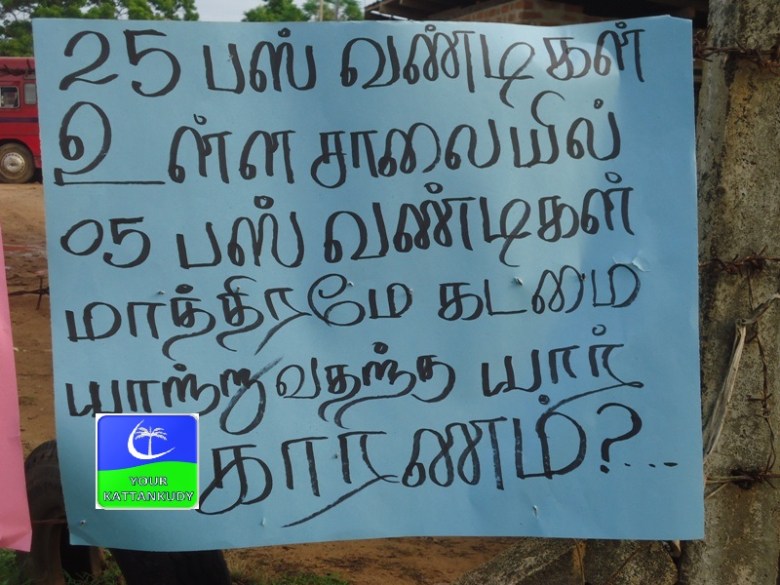 25 பஸ் வண்டிகள்
உள்ள சாலையில்
05 பஸ் வண்டிகள்
மாத்திரமே கடமை
யாற்றுவதற்த யார்
காரணம்?...
YOUR
KATTANKUDY